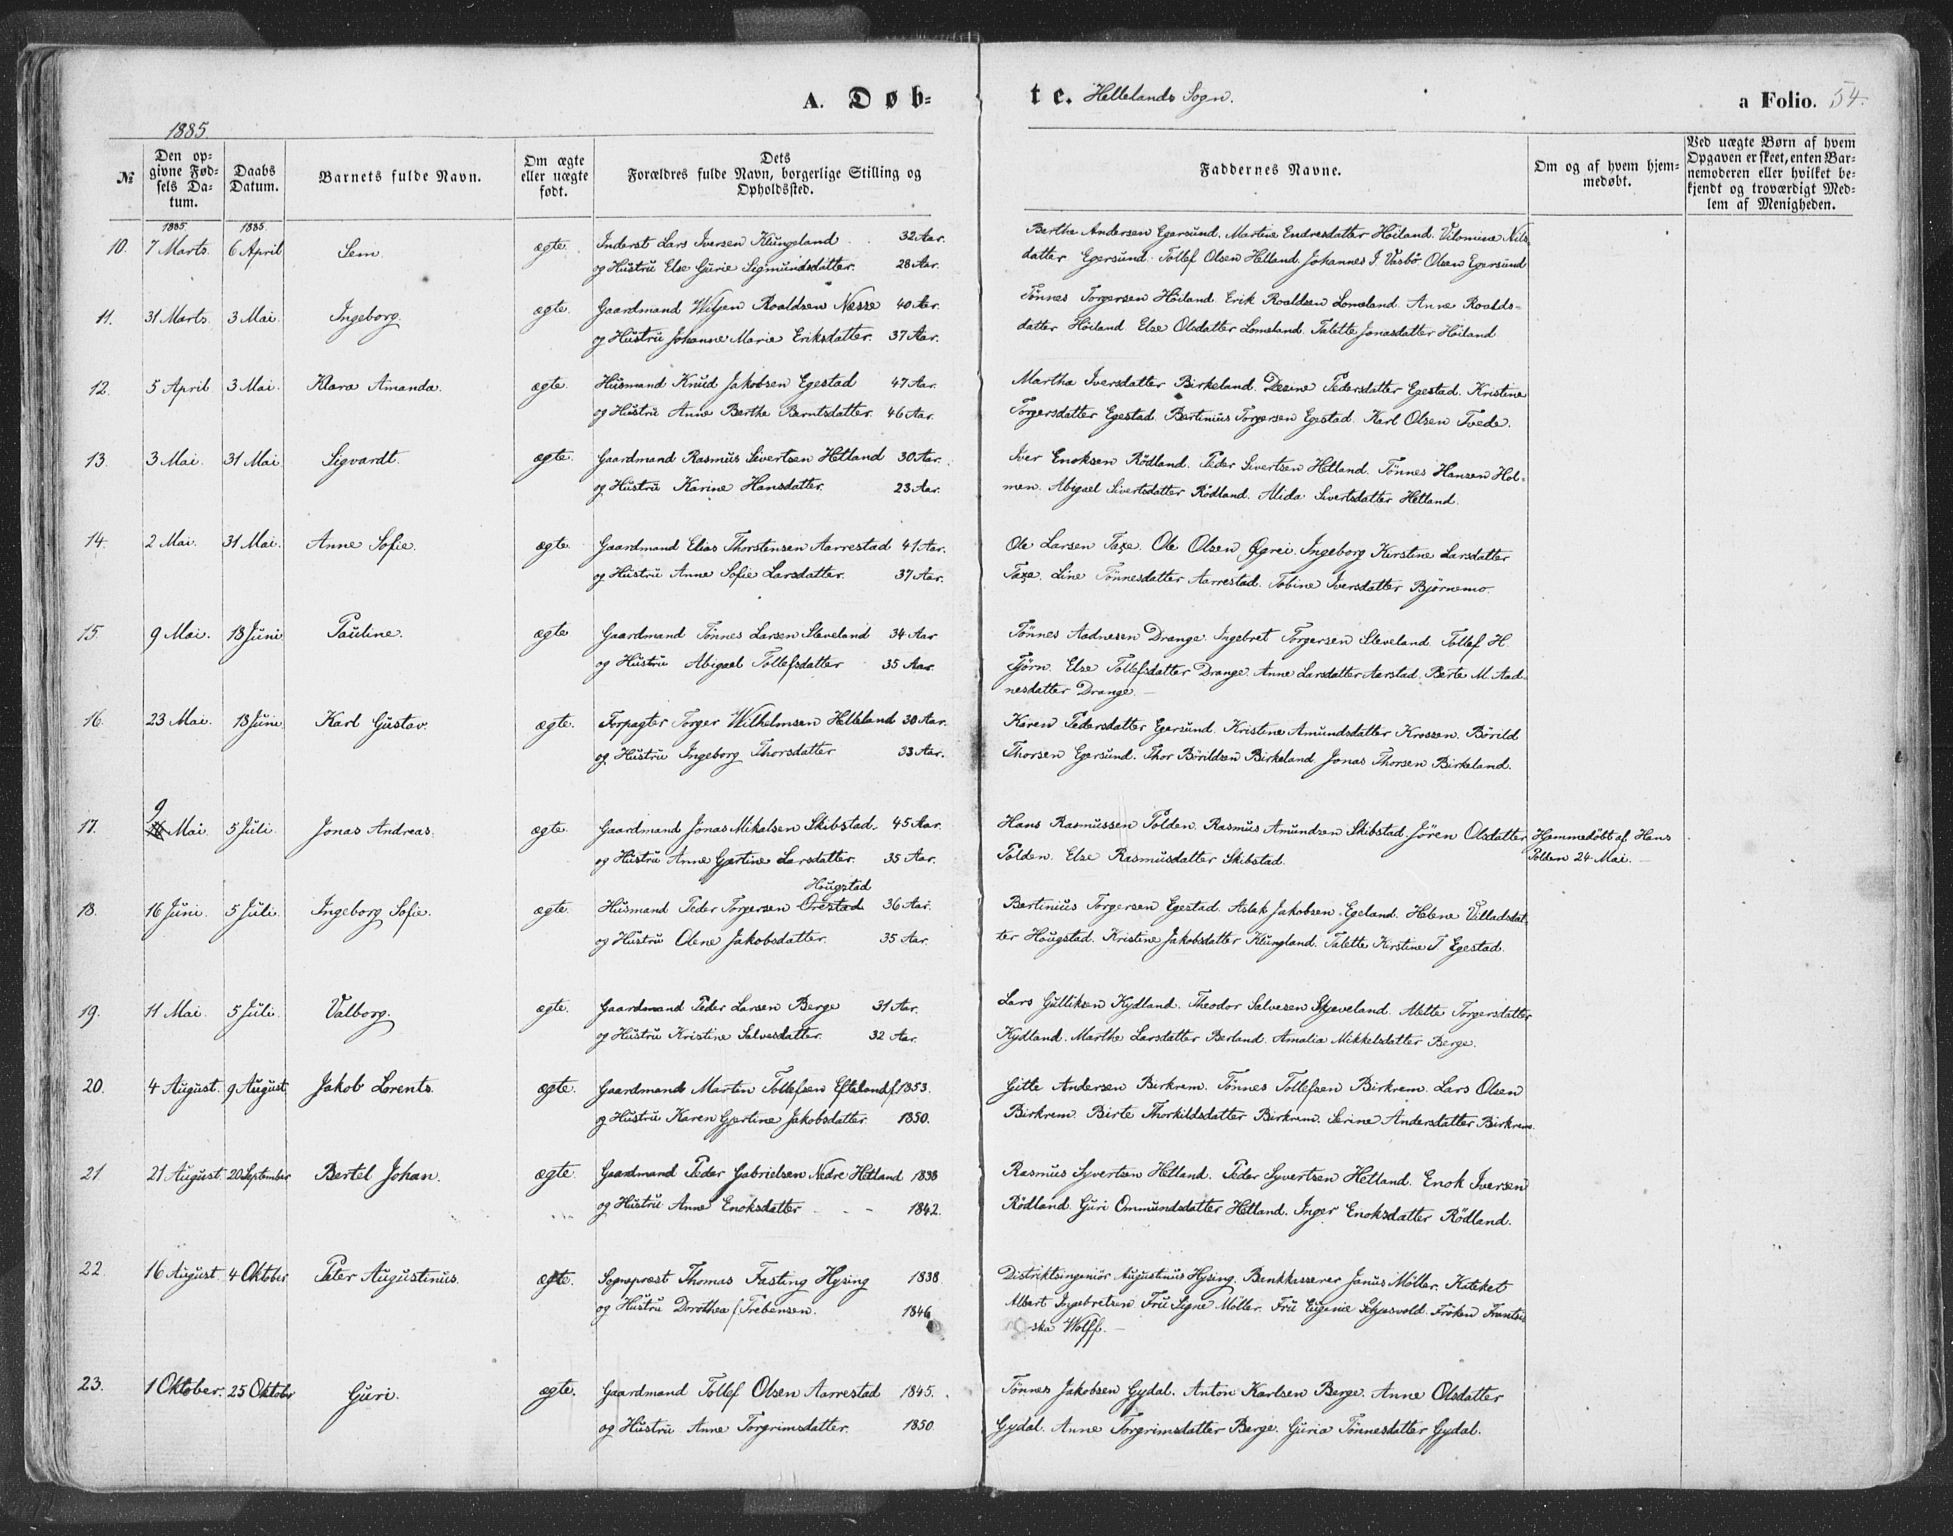 A. Døb=
te. Hellelands Sogn.
a Folio. 54.
1885.
№
Den op=
givne Fød=
sels Da=
tum.
Daabs
Datum.
Barnets fulde Navn.
Om ægte
eller uægte
født.
Dets
Forældres fulde Navn, borgerlige Stilling og
Opholdssted.
Faddernes Navne.
Om og af hvem hjem=
medøbt.
Ved uægte Børn af hvem
Opgaven er skeet, enten Bar=
nemoderen eller hvilket be=
kjendt og troværdigt Med=
lem af Menigheden.
1885. 1885.
10. 7 Marts. 6 April Sem ægte. Inderst Lars Iversen Klungeland 32 Aar.
og Hustru Else Gurie Sigmundsdatter. 28 Aar.
Berthe Andersen Egersund. Martine Endresdatter Høiland. Vilomine Nils
datter Egersund. Tollef Olsen Helland. Johannes J. Vasbø. Olsen Egersund
11. 31 Marts. 3 Mai. Ingeborg. ægte. Gaardmand Wiljen Roaldsen Nesse 40 Aar.
og Hustru Johanne Marie Eriksdatter. 37 Aar.
Tønnes Torgersen Høiland. Erik Roaldsen Lomeland. Anne Roalds=
datter Høiland. Else Olsdatter Lomeland. Talette Jonasdatter Høiland
12. 5 April 3 Mai. Klara Amanda. ægte. Husmand Knud Jakobsen Egestad 47 Aar.
og Hustru Anne Berthe Berntsdatter. 46 Aar.
Martha Iversdatter Birkeland. Desine Pedersdatter Egestad. Kristine
Torgersdatter Egestad. Bertinius Torgersen Egestad. Karl Olsen Tvede.
13. 3 Mai. 31 Mai Sigvardt. ægte. Gaardmand Rasmus Sivertsen Hetland 30 Aar.
og Hustru Karine Hansdatter. 23 Aar.
Iver Enoksen Rødland. Peder Sivertsen Hetland. Tønnes Hansen Hol=
men. Abigael Sivertsdatter Rødland. Alida Sivertsdatter Hetland.
14. 2 Mai. 31 Mai. Anne Sofie. ægte Gaardmand Elias Thorstensen Aarrestad 41 Aar.
og Hustru Anne Sofie Larsdatter. 37 Aar.
Ole Larsen Taxe. Ole Olsen Øgrei. Ingeborg Kirstine Larsdatter
Taxe. Line Tønnesdatter Aarrestad. Tobine Iversdatter Bjørnemo.
15 9 Mai. 13 Juni Pauline. ægte Gaardmand Tønnes Larsen Sleveland 34 Aar
og Hustru Abigael Tollefsdatter 35 Aar.
Tønnes Aadnesen Drange. Ingebret Torgersen Sleveland. Tollef H.
Tjørn. Else Tollefsdatter Drange. Anne Larsdatter Aarstad. Berte M. Aad=
nesdatter Drange. —
16. 23 Mai. 13 Juni Karl Gustav. ægte. Forpagter Torger Wilhelmsen Helleland 30 Aar.
og Hustru Ingeborg Thorsdatter 33 Aar.
Karen Pedersdatter Egersund. Kristine Amundsdatter Krossen. Børild
Thorsen Egersund. Thor Børildsen Birkeland. Jonas Thorsen Birkeland.
17. 9 Mai. 5 Juli. Jonas Andreas. ægte. Gaardmand Jonas Mikalsen Skibstad. 45 Aar.
og Hustru Anne Gjertine Larsdatter. 35 Aar.
Hans Rasmussen Polden. Rasmus Amundsen Skibstad. Jøren Olsdatter
Polden. Else Rasmusdatter Skibstad.
Hjemmedøbt af Hans
Polden 24 Mai. —
Hougstad
18. 16 Juni. 5 Juli. Ingeborg Sofie. ægte. Husmand Peder Torgersen Orestad 36 Aar.
og Hustru Olene Jakobsdatter. 35 Aar.
Bertinius Torgersen Egestad. Aslak Jakobsen Egeland. Helene Villadsdat
ter Hougstad. Kristine Jakobsdatter Klungland. Talette Kirstine T. Egestad.
19. 11 Mai. 5 Juli. Valborg. ægte. Gaardmand Peder Larsen Berge 31 Aar.
og Hustru Kristine Salvesdatter. 32 Aar.
Lars Gulliksen Kydland. Theodor Salvesen Skjeveland. Alette Torgersdatter
Kydland. Marthe Larsdatter Berland. Amalia Mikkelsdatter Berge.
20. 4 August. 9 August Jakob Lorents. ægte. Gaardmand Martin Tollefsen Efteland f 1853.
og Hustru Karen Gjertine Jakobsdatter. 1850.
Gitte Andersen Birkrem. Tønnes Tollefsen Birkrem. Lars Olsen
Birkrem. Birte Thorkildsdatter Birkrem. Serine Andersdatter Birkrem.
21 21 August. 20 September Bertel Johan. ægte. Gaardmand Peder Gabrielsen Nedre Hetland 1838
og Hustru Anne Enoksdatter 1842.
Rasmus Syvertsen Hetland. Peder Syvertsen Hetland. Enok Iversen
Rødland. Guri Ommundsdatter Hetland. Inger Enoksdatter Rødland.
22. 16 August. 4 Oktober Peter Augustinus. ægte. Sognepræst Thomas Fasting Hysing 1838
og Hustru Dorothea f. Trebensen. 1846
Distriktsingeniør Augustinus Hysing. Bankkasserer Janus Møller. Kateket
Albert Ingebretsen. Fru Signe Møller. Fru Eugenie Schjesvold. Frøken Frantsi
ska Wolff. —
23. 1 Oktober. 25 Oktober Guri. ægte. Gaardmand Tollef Olsen Aarrestad 1845.
og Hustru Anne Torgrimsdatter. 1850
Tønnes Jakobsen Gydal. Anton Karlsen Berge. Anne Olsdatter
Gydal. Anne Torgrimsdatter Berge. Guria Tønnesdatter Gydal.